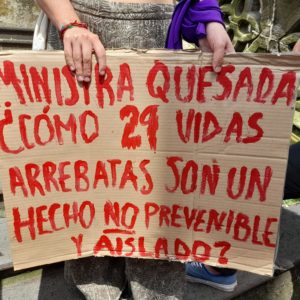 MINISTRA QUESADA
¿CÓMO 29 VIDAS
ARREBATAS SON UN
HECHO NO PREVENIBLE
Y AISLADO?